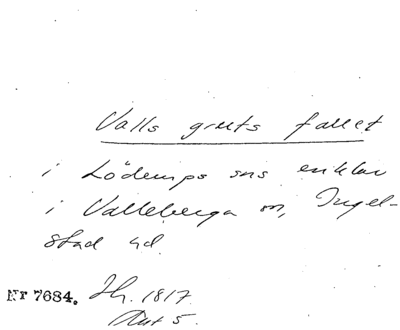 Valls gruts fallet
i Löderups sns enklav
i Valleberga sn, Ingel-
stad hd.
Nr 7684. Jh. 1817
Akt 5.